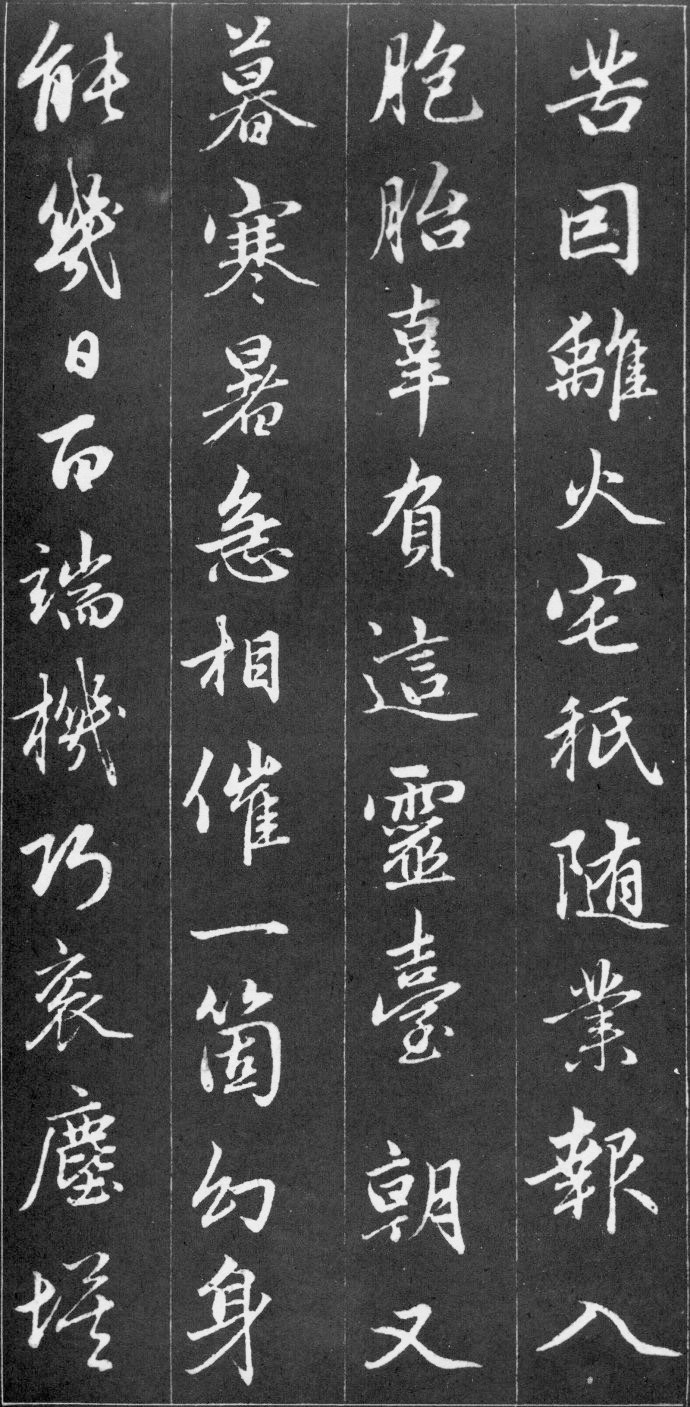 苦囙離火宅秖随業報入
胞胎辜負這靈臺 朝又
暮寒暑急相催一箇幻身
能幾日百端機巧衮塵埃